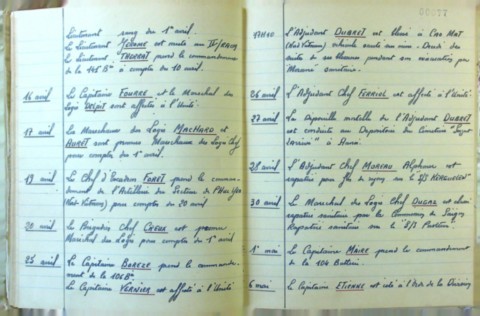 Lieutenant rang du 1er avril.
Le Lieutenant est muté au
Le Lieutenant THERRAT prend le commandement
de la à compter du 10 avril.
16 avril Le Capitaine FOURRE et le Maréchal des
Logis sont affectés à l'Unité.
17 avril Les Maréchaux des Logis MACHURO et
AURET sont promus Maréchaux des Logis Chef
pour compter du 1er avril.
19 avril Le Chef d'Escadron FERET prend le comman-
dement de l'Artillerie du Secteur de
(Nord Vietnam) pour compter du 20 avril
20 avril Le Brigadier Chef est promu
Maréchal des Logis pour compter du 1er avril
25 avril Le Capitaine BOREZE prend le commande-
ment de la 106 Bie.
Le Capitaine VERNIER est affecté à l'Unité
17H10 L'Adjudant DUBRET est blessé à Cao Mat
(Nord Vietnam) Décédé des
suites de ses blessures pendant son évacuation par
sanitaire.
26 avril L'Adjudant Chef FERRIOL est affecté à l'Unité
27 avril La dépouille mortelle de l'Adjudant DUBRET
est conduite au Dépositoire du Cimetière
à Hanoï.
28 avril L'Adjudant Chef MOREAU Alphonse est
rapatrié par fin de séjour sur le S/S KERGUELEN
30 avril Le Maréchal des Logis Chef est
rapatrié sanitaire par le
Rapatrié sanitaire sur le S/S Pasteur.
1er mai Le Capitaine MAIRE prend le commandement
de la 104 Batterie.
6 mai Le Capitaine ETIENNE est cité à l'Ordre de la Division